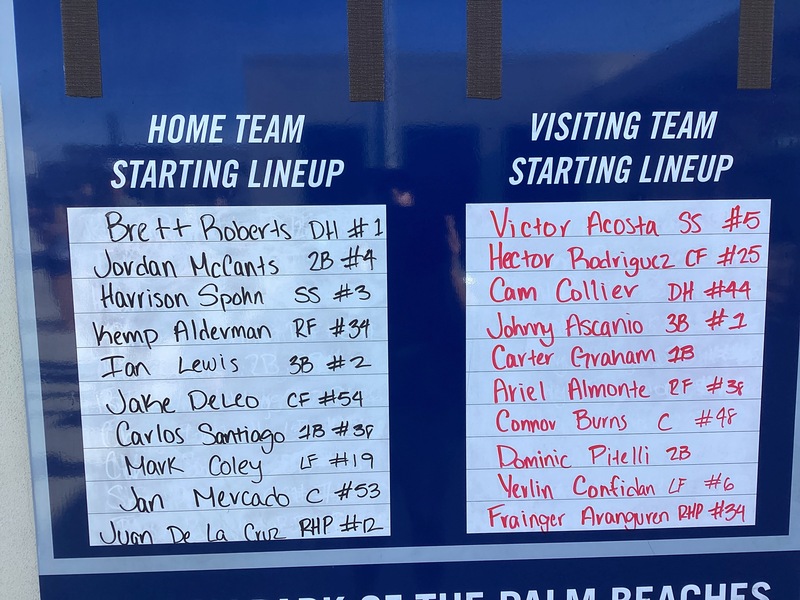 HOME TEAM
STARTING LINEUP
Brett Roberts DH #1
Jordan McCants 2B #4
Harrison Spohn SS #3
Kemp Alderman RF #34
Ian Lewis 3B #2
Jake DeLeo CF #54
Carlos Santiago 1B #38
Mark Coley LF #19
Jan Mercado C #53
Juan De La Cruz RHP #12
VISITING TEAM
STARTING LINEUP
Victor Acosta SS #5
Hector Rodriguez CF #25
Cam Collier DH #44
Johnny Ascanio 3B #1
Carter Graham 1B
Ariel Almonte RF #38
Connor Burns C #48
Dominic Pitelli 2B
Yerlin Confidan LF #6
Frainger Aranguren RHP #34
PARK OF THE PALM BEACHES